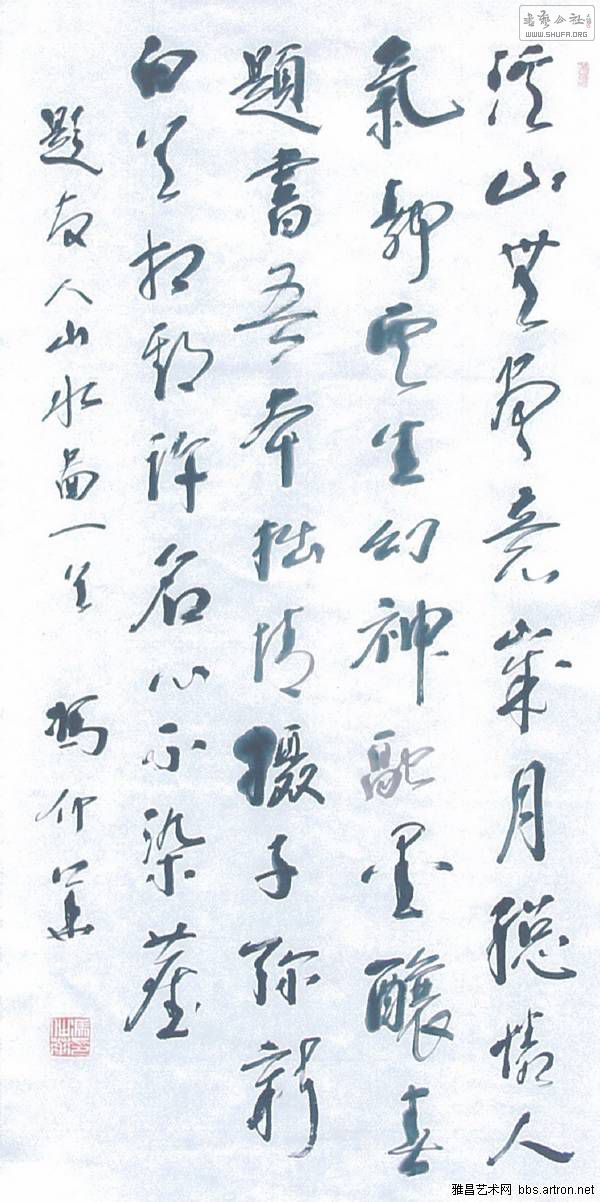 書藝公社
WWW.SHUFA.ORG
溪山無盡意歲月總憐人
氣雲生幻神融墨釀春
題書吾本拙情摄子弥新
白首相期許名心不染塵
題友人山水畫一首 馮仲
雅昌艺术网 bbs.artron.net